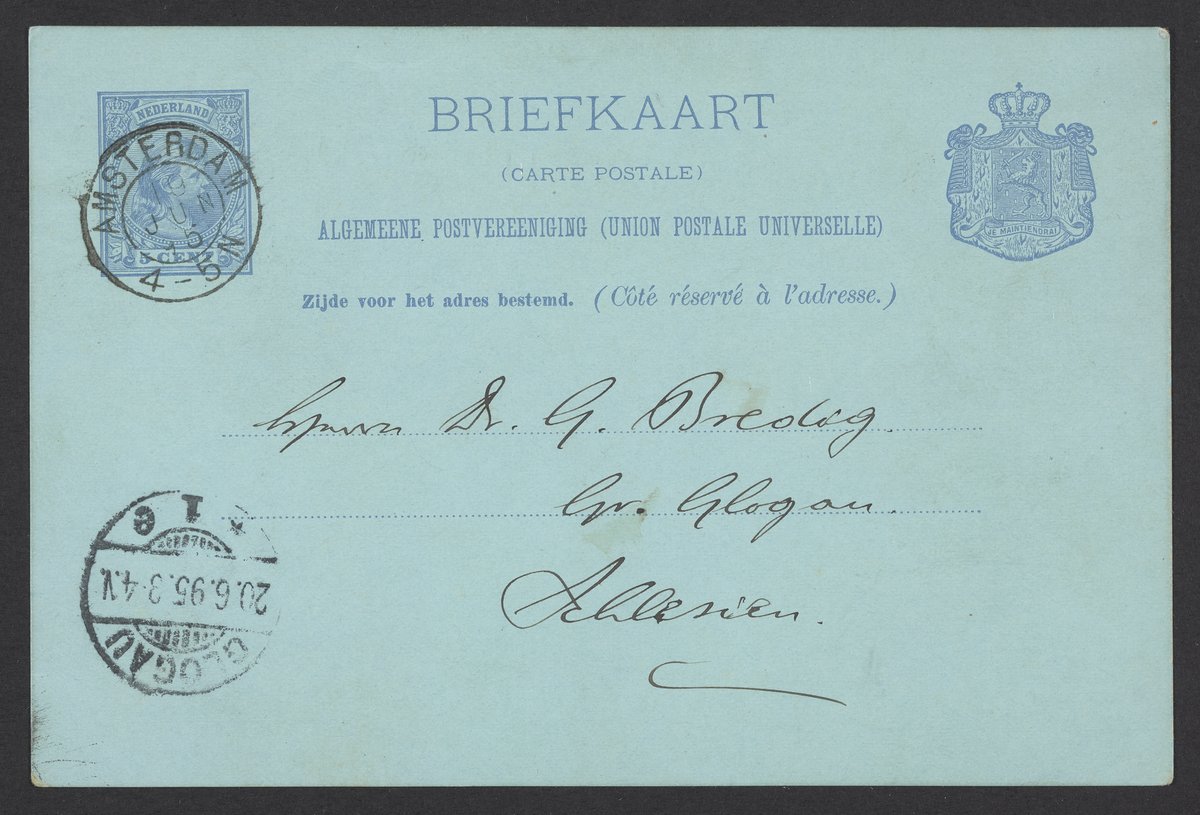 NEDERLAND
5 CENT
AMSTERDAM
JUN
95
4-5N
BRIEFKAART
(CARTE POSTALE)
ALGEMEENE POSTVEREENIGING (UNION POSTALE UNIVERSELLE)
JE MAINTIENDRAI
Zijde voor het adres bestemd. (Côté réservé à l'adresse.)
Herrn Dr. G. Bredig.
Gr. Glogau.
Schlesien.
GLOGAU
20.6.95.3-4.V.
* 1 e